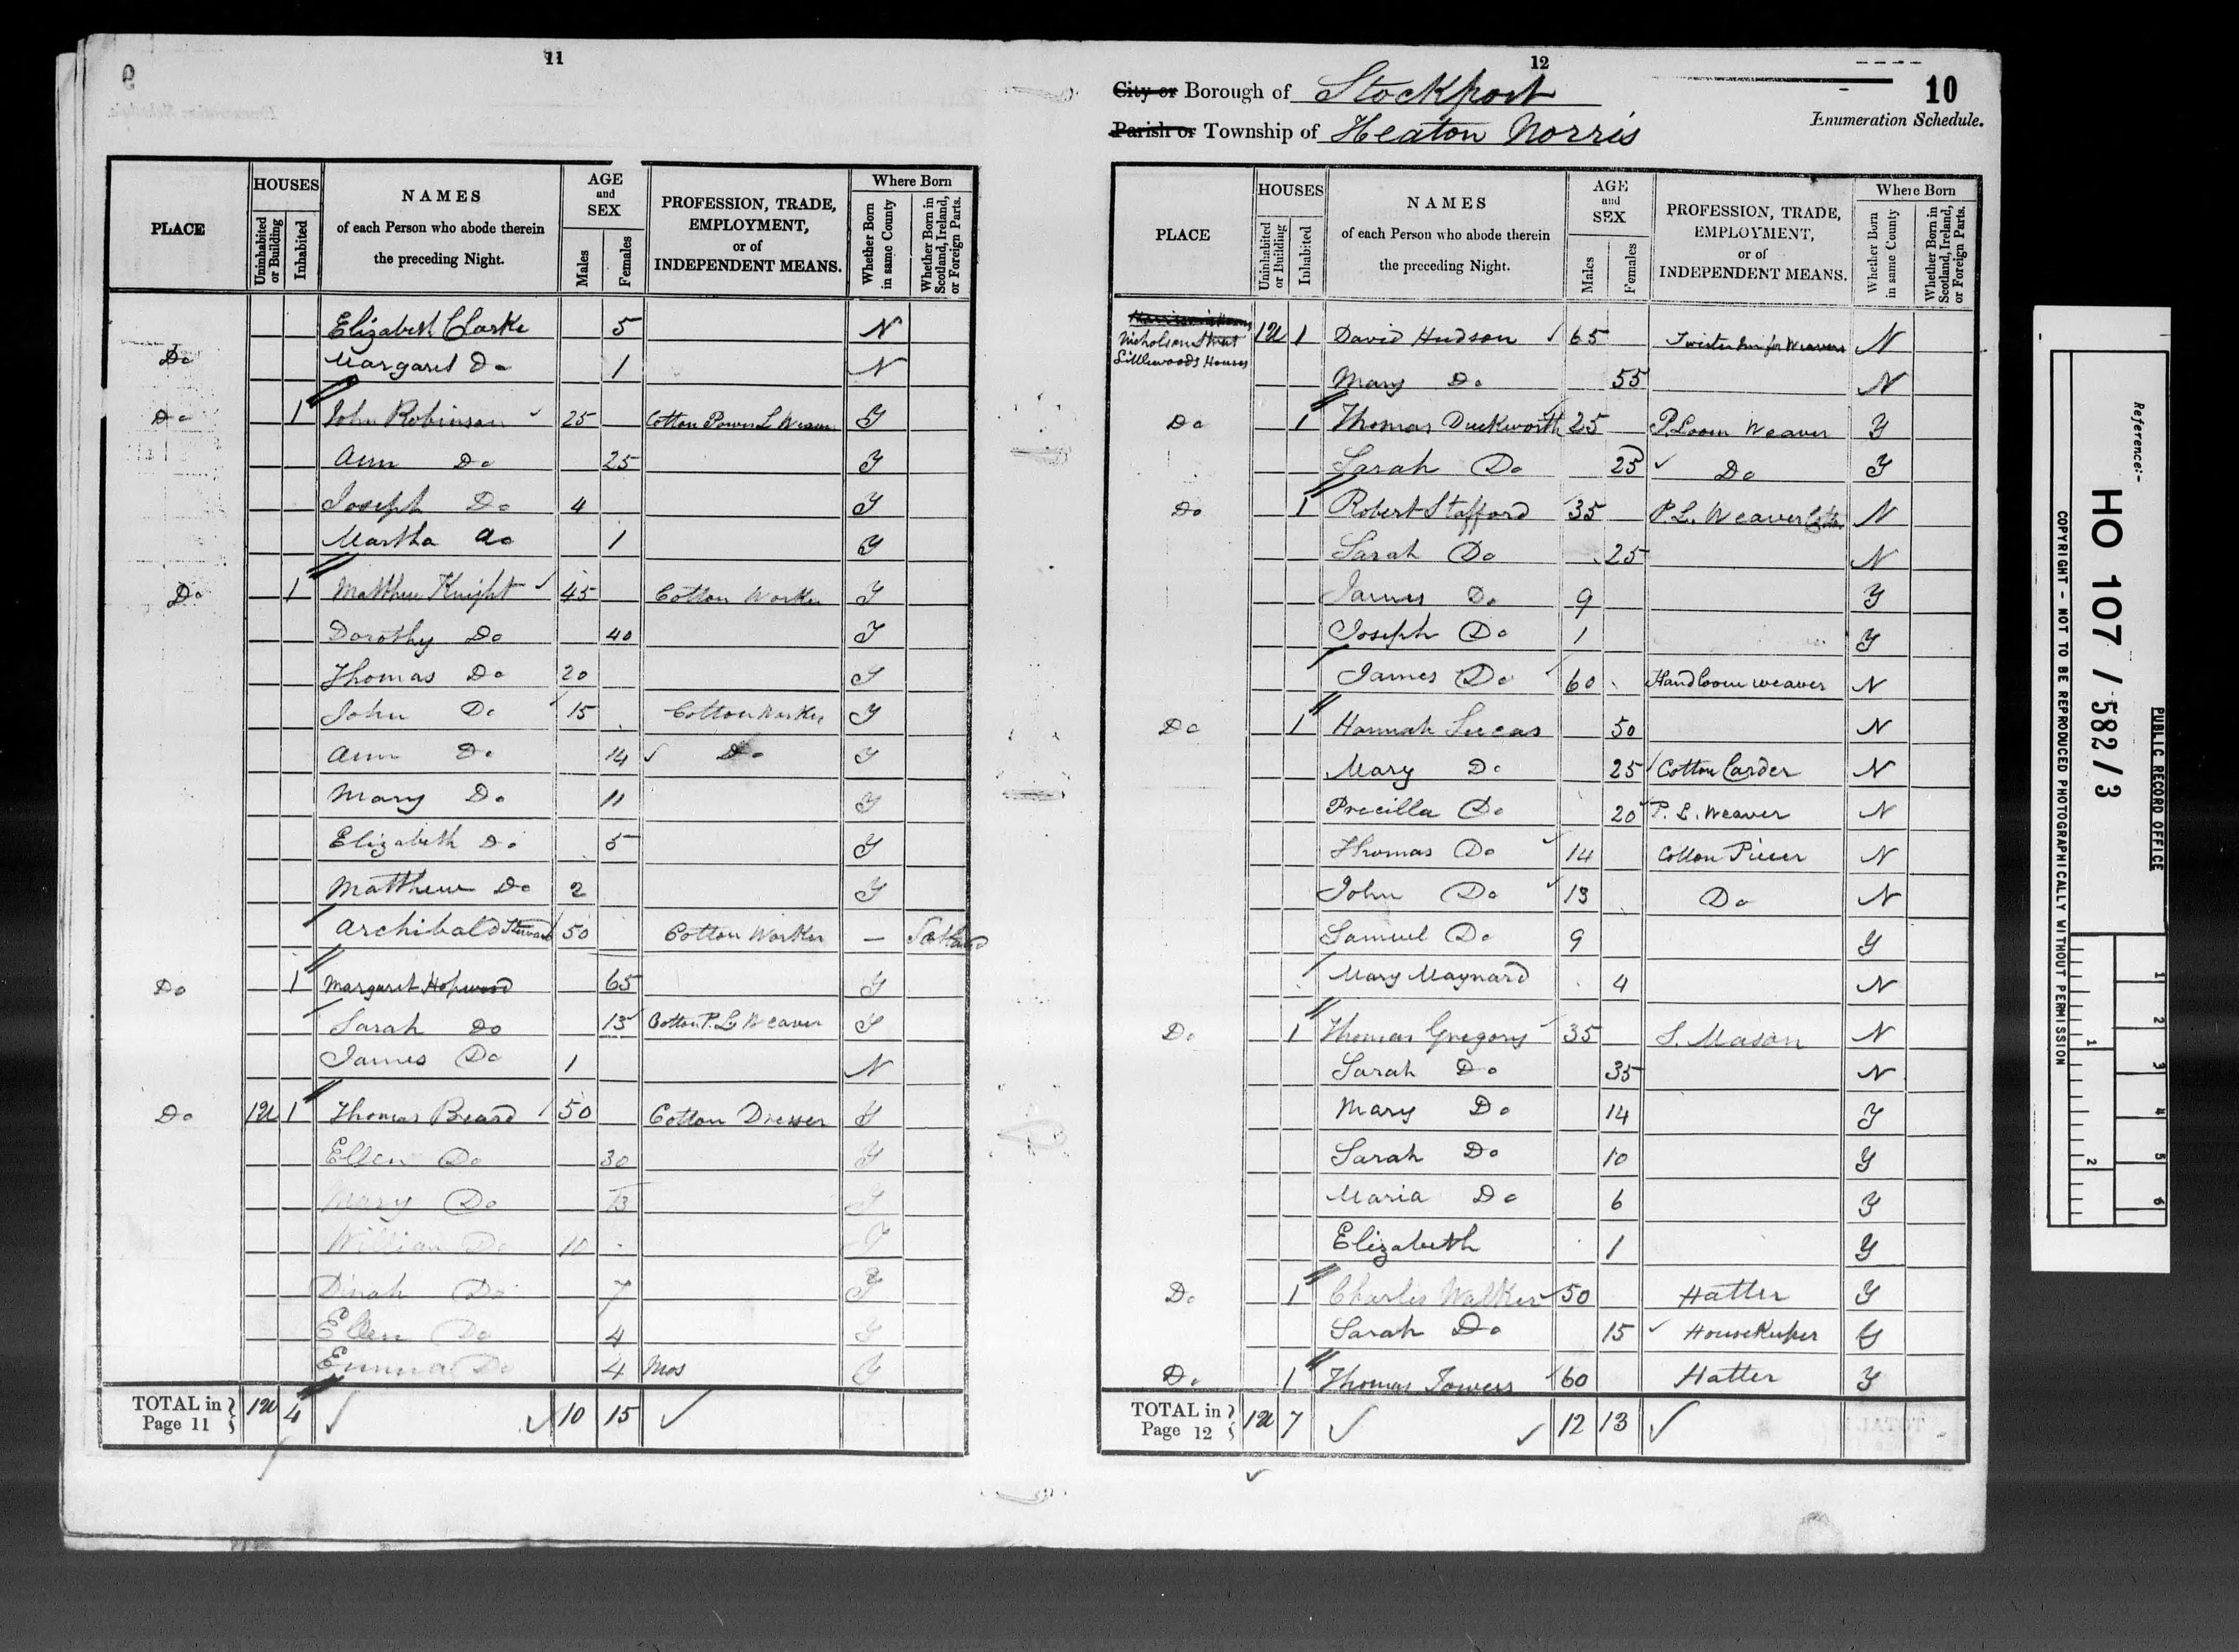 11
PLACE
HOUSES
Uninhabited or Building
Inhabited
NAMES
of each Person who abode therein
the preceding Night.
AGE
and
SEX
Males
Females
PROFESSION, TRADE,
EMPLOYMENT,
or of
INDEPENDENT MEANS.
Where Born
Whether Born in same County
Whether Born in Scotland, Ireland, or Foreign Parts.
Elizabeth Clarke 5 N
Do Margaret Do 1 N
Do 1 John Robinson 25 Cotton Power L Weaver Y
Ann Do 25 Y
Joseph Do 4 Y
Martha Do 1 Y
Do 1 Matthew Knight 45 Cotton Worker Y
Dorothy Do 40 Y
Thomas Do 20 Y
John Do 15 Cotton Worker Y
Ann Do 14 Do Y
Mary Do 11 Y
Elizabeth Do 5 Y
Matthew Do 2 Y
Archibald Steward 50 Cotton Worker — Scotland
Do 1 Margaret Hopwood 65 Y
Sarah Do 15 Cotton P. L. Weaver Y
James Do 1 N
Do 1U 1 Thomas Beard 50 Cotton Dresser Y
Ellen Do 30 Y
Mary Do 13 Y
William Do 10 Y
Dinah Do 7 Y
Ellen Do 4 Y
Emma Do 4 Mos Y
TOTAL in Page 11 1U 4 10 15
12
10
City or Borough of Stockport
Enumeration Schedule.
Parish or Township of Heaton Norris
PLACE
HOUSES
Uninhabited or Building
Inhabited
NAMES
of each Person who abode therein
the preceding Night.
AGE
and
SEX
Males
Females
PROFESSION, TRADE,
EMPLOYMENT,
or of
INDEPENDENT MEANS.
Where Born
Whether Born in same County
Whether Born in Scotland, Ireland, or Foreign Parts.
Nicholson Street
Littlewoods Houses 1U 1 David Hudson 65 Twister for Weavers N
Mary Do 55 N
Do 1 Thomas Duckworth 25 P. Loom Weaver Y
Sarah Do 25 Do Y
Do 1 Robert Stafford 35 P. L. Weaver N
Sarah Do 25 N
James Do 9 Y
Joseph Do 1 Y
James Do 60 Hand loom weaver N
Do 1 Hannah Lucas 50 N
Mary Do 25 Cotton Carder N
Precilla Do 20 P. L. Weaver N
Thomas Do 14 Cotton Piecer N
John Do 13 Do N
Samuel Do 9 Y
Mary Maynard 4 N
Do 1 Thomas Gregory 35 S. Mason N
Sarah Do 35 N
Mary Do 14 Y
Sarah Do 10 Y
Maria Do 6 Y
Elizabeth 1 Y
Do 1 Charles Walker 50 Hatter Y
Sarah Do 15 HouseKeeper Y
Do 1 Thomas Towers 60 Hatter Y
TOTAL in Page 12 1U 7 12 13
Reference:-
HO 107 / 582 / 3
PUBLIC RECORD OFFICE
COPYRIGHT - NOT TO BE REPRODUCED PHOTOGRAPHICALLY WITHOUT PERMISSION
1 2 3 4 5 6
1 2